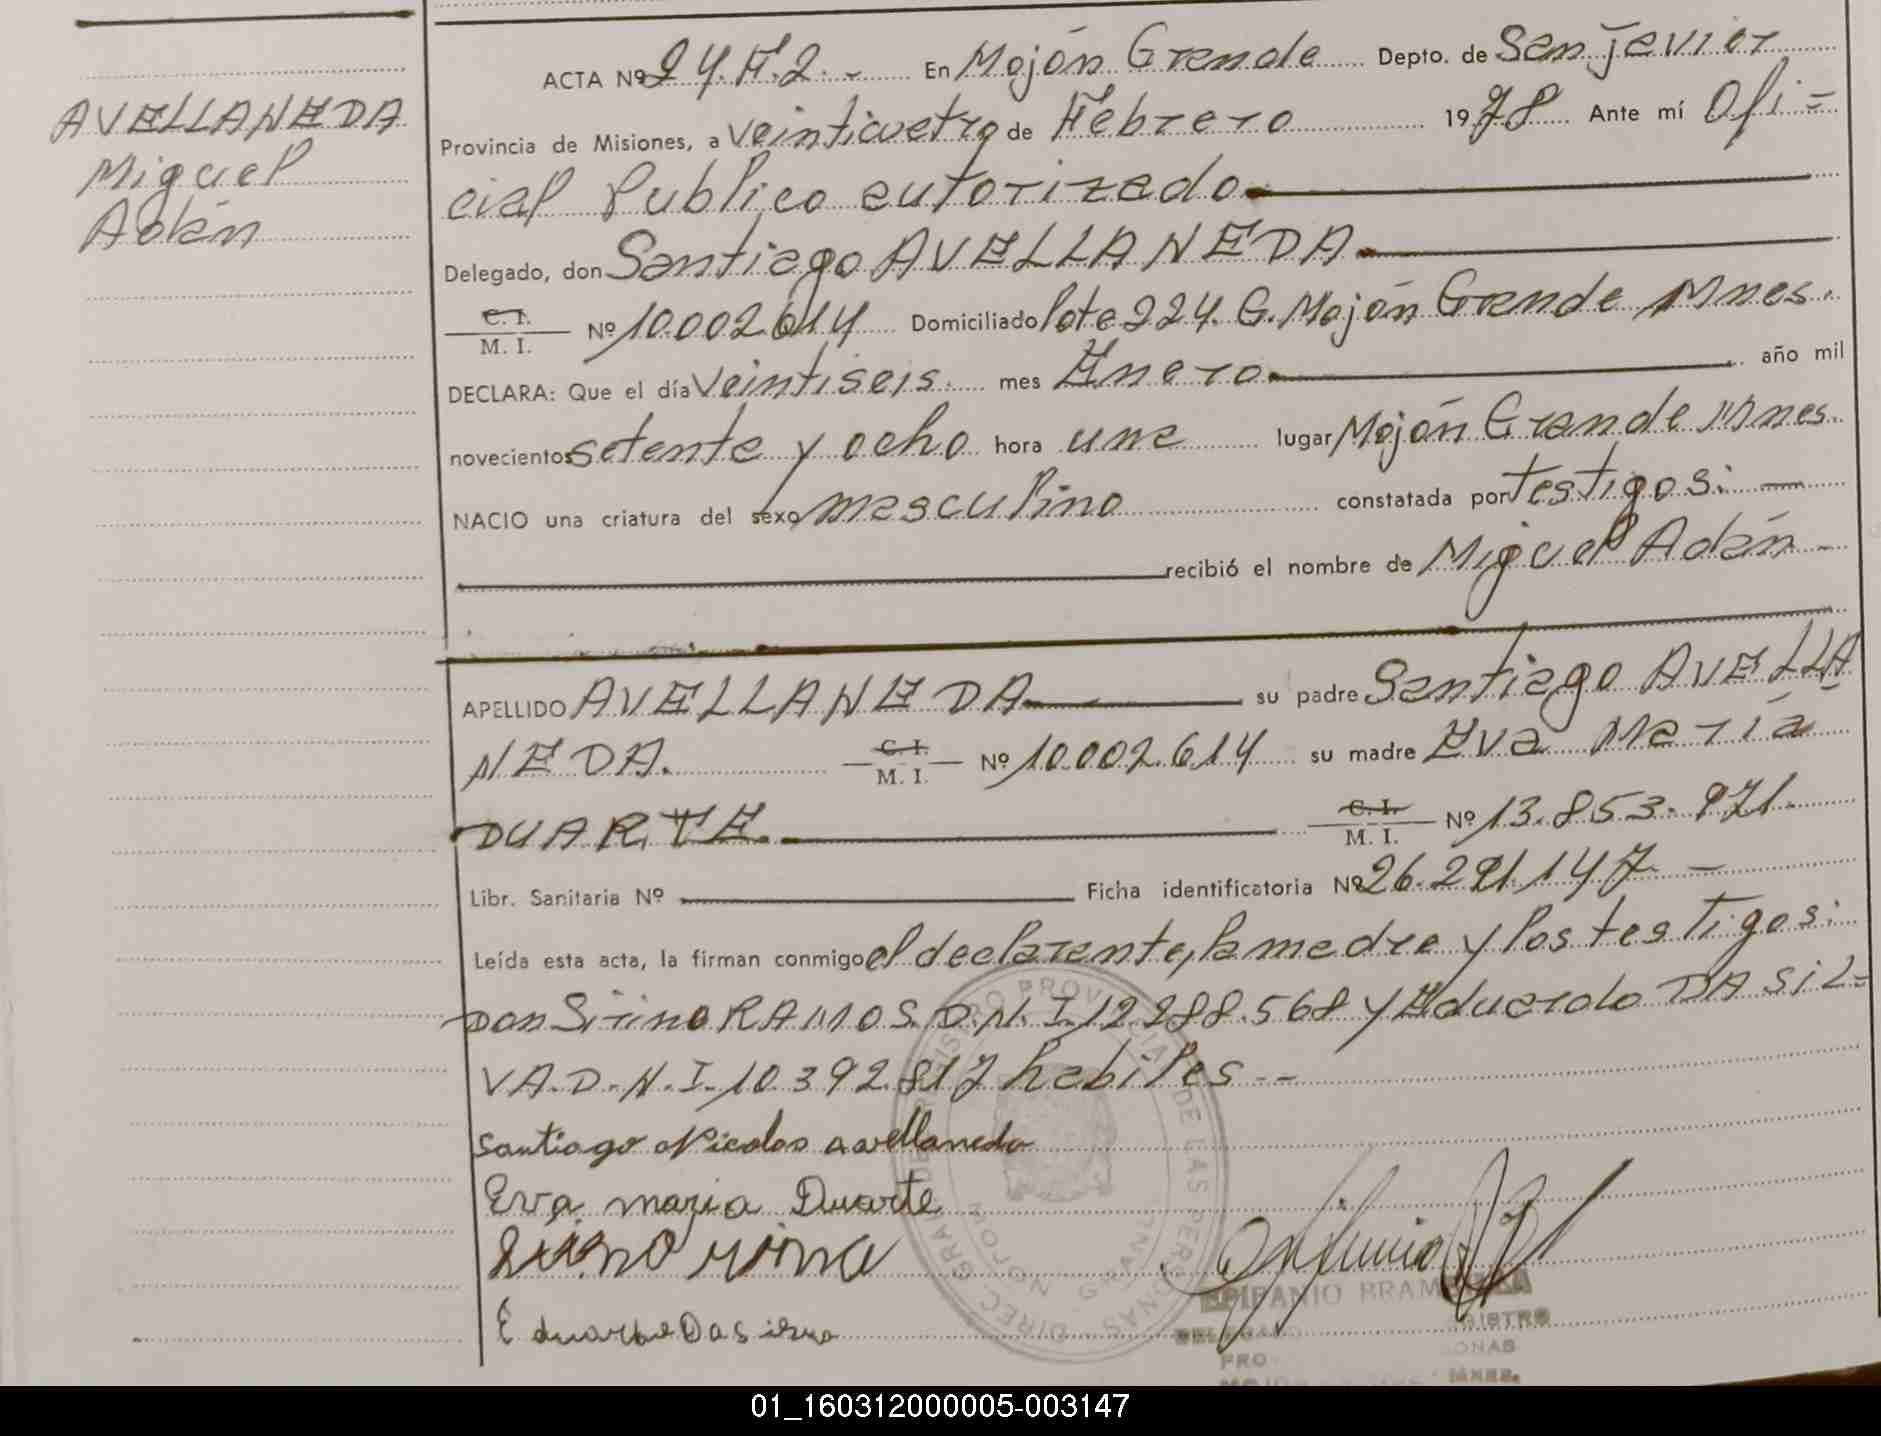 AVELLANEDA
Miguel
Adán
ACTA Nº 24.F.2.- En Mojón Grande Depto. de San Javier
Provincia de Misiones, a veinticuatro de Febrero 1978 Ante mí Ofi=
cial Publico autorizado
Delegado, don Santiago AVELLANEDA
C. I. / M. I. Nº 10.002.614 Domiciliado lote 224. G. Mojón Grande Mnes.
DECLARA: Que el día Veintiseis mes Enero año mil
novecientos setenta y ocho hora una lugar Mojón Grande Mnes.
NACIO una criatura del sexo masculino constatada por testigos: —
recibió el nombre de Miguel Adán -
APELLIDO AVELLANEDA su padre Santiago AVELLA
NEDA. C. I. / M. I. Nº 10.002.614 su madre Eva María
DUARTE. C. I. / M. I. Nº 13.853.971.
Libr. Sanitaria Nº Ficha identificatoria Nº 26.291.147 -
Leída esta acta, la firman conmigo el declarante, la madre y los testigos:
Don Sirino RAMOS. D.N.I. 12.288.568 y Eduardo DA SIL=
VA. D.N.I. 10.392.817 habiles --
Santiago Nicolas avellaneda
Eva maria Duarte
Eduardo Da silva
DIREC. GRAL. DE REGISTRO PROVINCIAL DE LAS PERSONAS
MOJON GRANDE
EPIFANIO BRAM
01_160312000005-003147